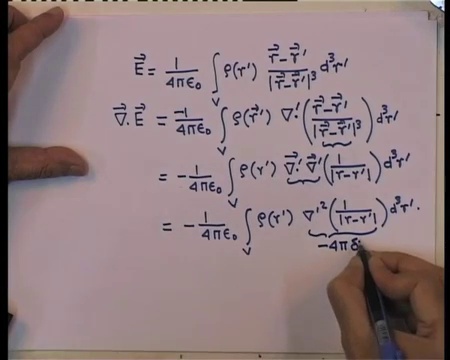 E⃗ = 1/4πε₀ ∫_V ρ(r') (r⃗ - r⃗')/|r⃗ - r⃗'|³ d³r'
∇⃗. E⃗ = -1/4πε₀ ∫_V ρ(r⃗') ∇'. ( (r⃗ - r⃗')/|r⃗ - r⃗'|³ ) d³r'
= - 1/4πε₀ ∫_V ρ(r') ∇⃗'. ∇⃗' ( 1/|r - r'| ) d³r'
= - 1/4πε₀ ∫_V ρ(r') ∇'² ( 1/|r - r'| ) d³r'.
-4πδ